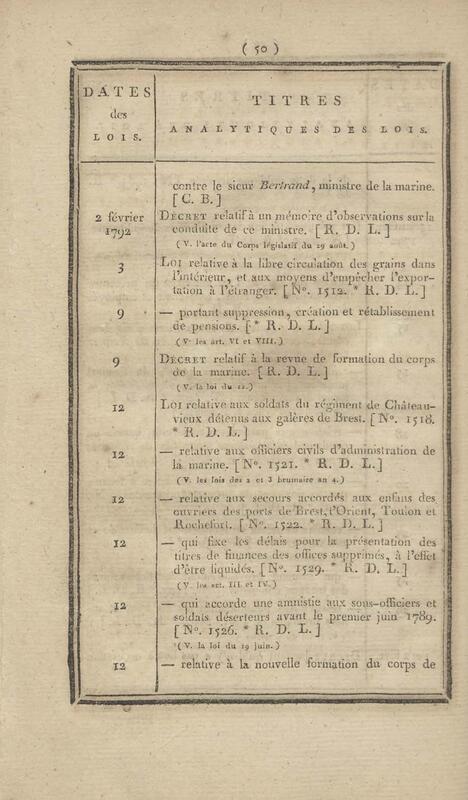 ( 50 )
DATES
des
LOIS.
TITRES
ANALYTIQUES DES LOIS.
contre le sieur Bertrand, ministre de la marine.
[ C. B. ]
2 février
1792
DÉCRET relatif à un mémoire d'observations sur la
conduite de ce ministre. [ R. D. L. ]
( V. l'acte du Corps législatif du 29 août. )
3
LOI relative à la libre circulation des grains dans
l'intérieur, et aux moyens d'empêcher l'expor-
tation à l'étranger. [ N°. 1512. * R. D. L. ]
9
— portant suppression, création et rétablissement
de pensions. [ * R. D. L. ]
( V. les art. VI et VIII. )
9
DÉCRET relatif à la revue de formation du corps
de la marine. [ R. D. L. ]
( V. la loi du 12. )
12
LOI relative aux soldats du régiment de Château-
vieux détenus aux galères de Brest. [ N°. 1518.
* R. D. L. ]
12
— relative aux officiers civils d'administration de
la marine. [ N°. 1521. * R. D. L. ]
( V. les lois des 2 et 3 brumaire an 4. )
12
— relative aux secours accordés aux enfans des
ouvriers des ports de Brest, l'Orient, Toulon et
Rochefort. [ N°. 1522. * R. D. L. ]
12
— qui fixe les délais pour la présentation des
titres de finances des offices supprimés, à l'effet
d'être liquidés. [ N°. 1529. * R. D. L. ]
( V. les art. III et IV. )
12
— qui accorde une amnistie aux sous-officiers et
soldats déserteurs avant le premier juin 1789.
[ N°. 1526. * R. D. L. ]
( V. la loi du 19 juin. )
12
— relative à la nouvelle formation du corps de